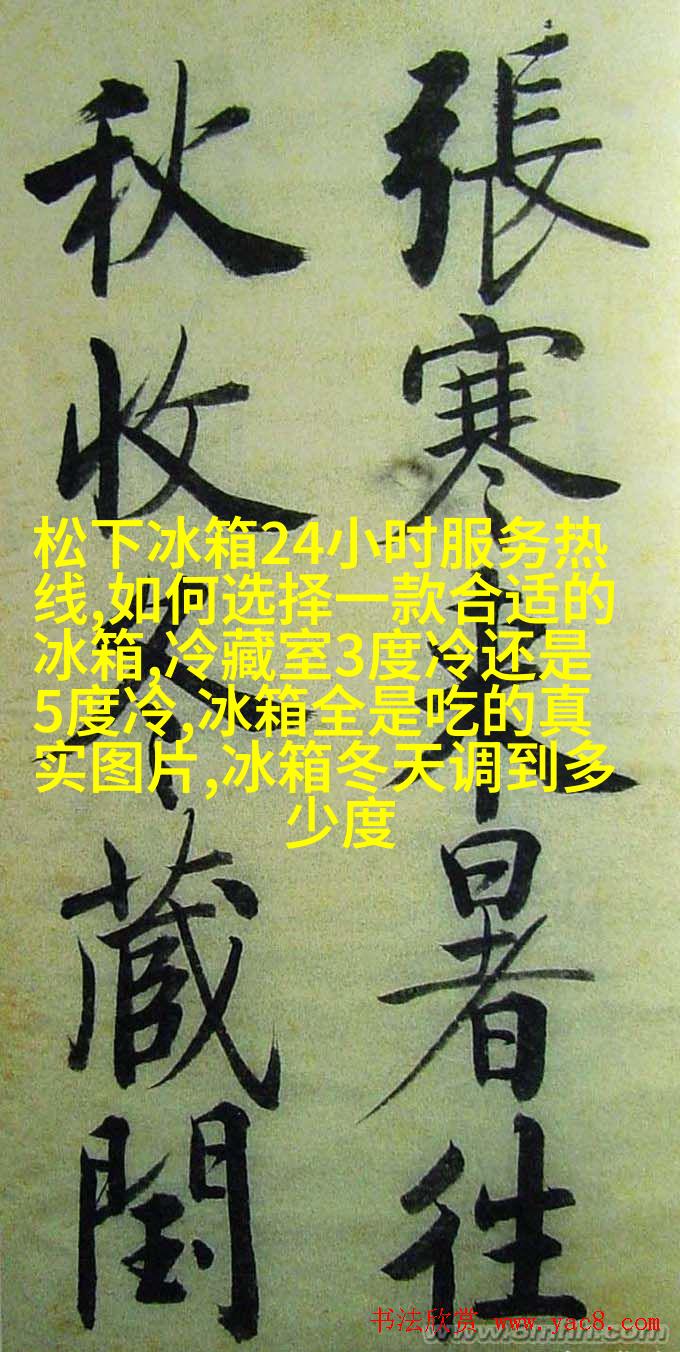 張寒来暑往
秋收冬蔵閏
松下冰箱24小时服务热
线,如何选择一款合适的
冰箱,冷藏室3度冷还是
5度冷,冰箱全是吃的真
实图片,冰箱冬天调到多
少度
书法欣赏 www.yac8.com